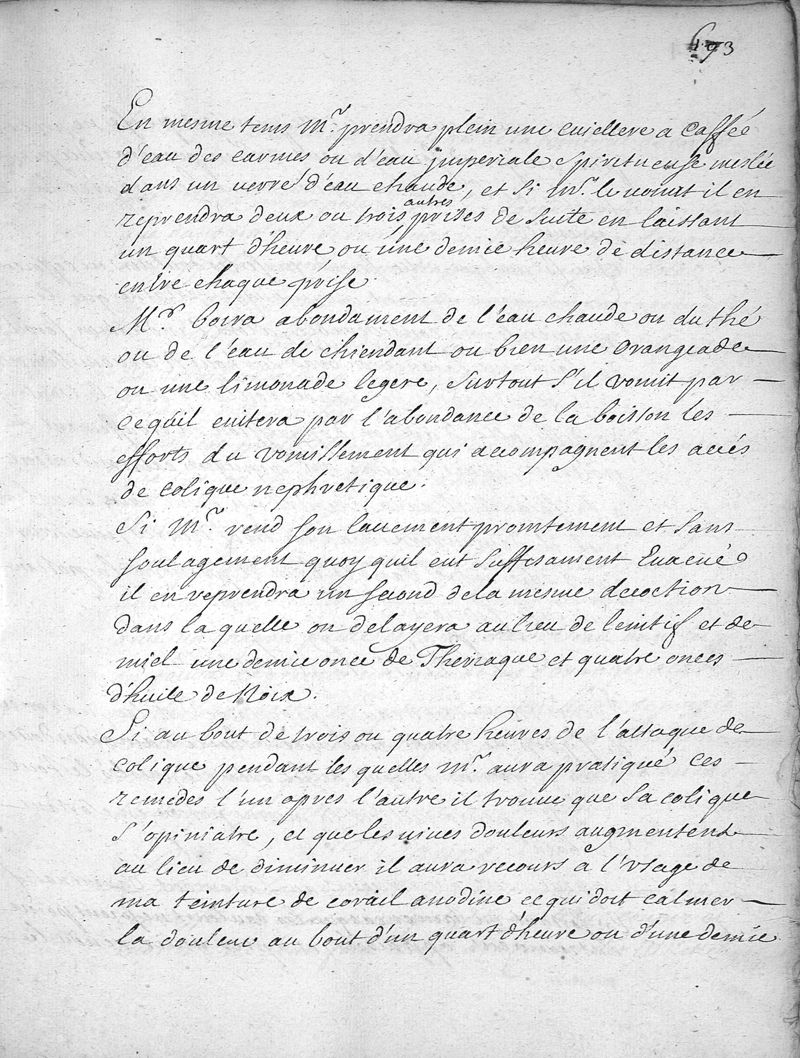 693
En mesme tems M.r prendra plein une cuiellere a caffée
d'eau des carmes ou d'eau jmperiale spiritueuse meslée
dans un verre d'eau chaude, et si M.r le vomit il en
autres
reprendra deux ou trois prises de suite en laissant
un quart d'heure ou une demie heure de distance
entre chaque prise.
M.r boira abondament de l'eau chaude ou du thé
ou de l'eau de chiendant ou bien une orangeade
ou une limonade legere, surtout s'il vomit par
cequ'il evitera par l'abondance de la boisson les
efforts du vomissement qui accompagnent les accés
de colique nephretique.
Si M.r rend son lavement promtement et sans
soulagement quoy quil eut suffesament Evacué
il en reprendra un second dela mesme decoction
dans la quelle on delayera au lieu de lenitif et de
miel une demie once de Theriaque et quatre onces
d'huile de Noix.
Si au bout de trois ou quatre heures de l'attaque de
colique pendant les quelles M.r aura pratiqué ces
remedes l'un apres l'autre il trouve que sa colique
s'opiniatre, et que les vives douleurs augmentent
au lieu de diminuer il aura recours a l'usage de
ma teinture de corail anodine ce qui doit calmer
la douleur au bout d'un quart d'heure ou d'une demie